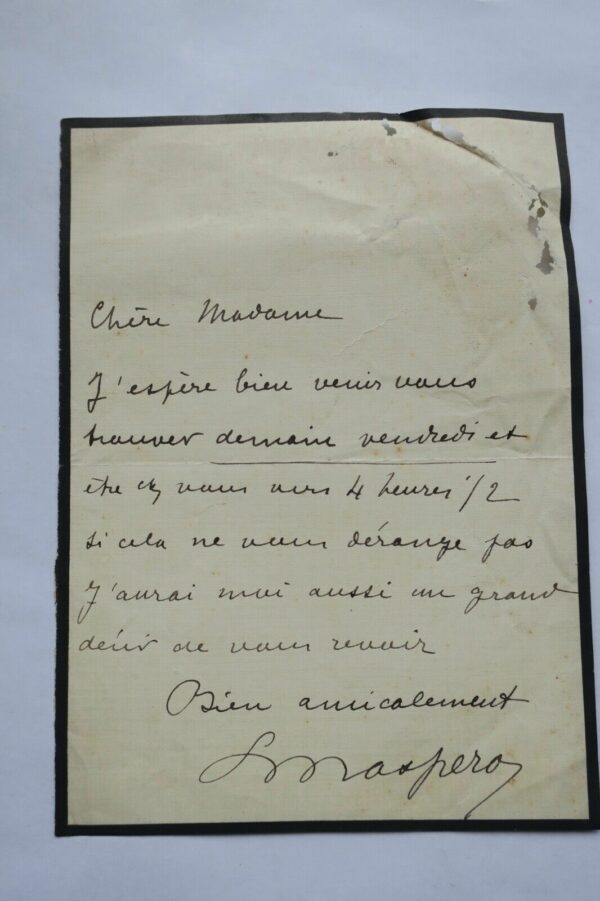 Chère Madame
J'espère bien venir vous
trouver demain vendredi et
être chz vous vers 4 heures 1/2
si cela ne vous dérange pas
J'aurai moi aussi un grand
désir de vous revoir
Bien amicalement
Maspero